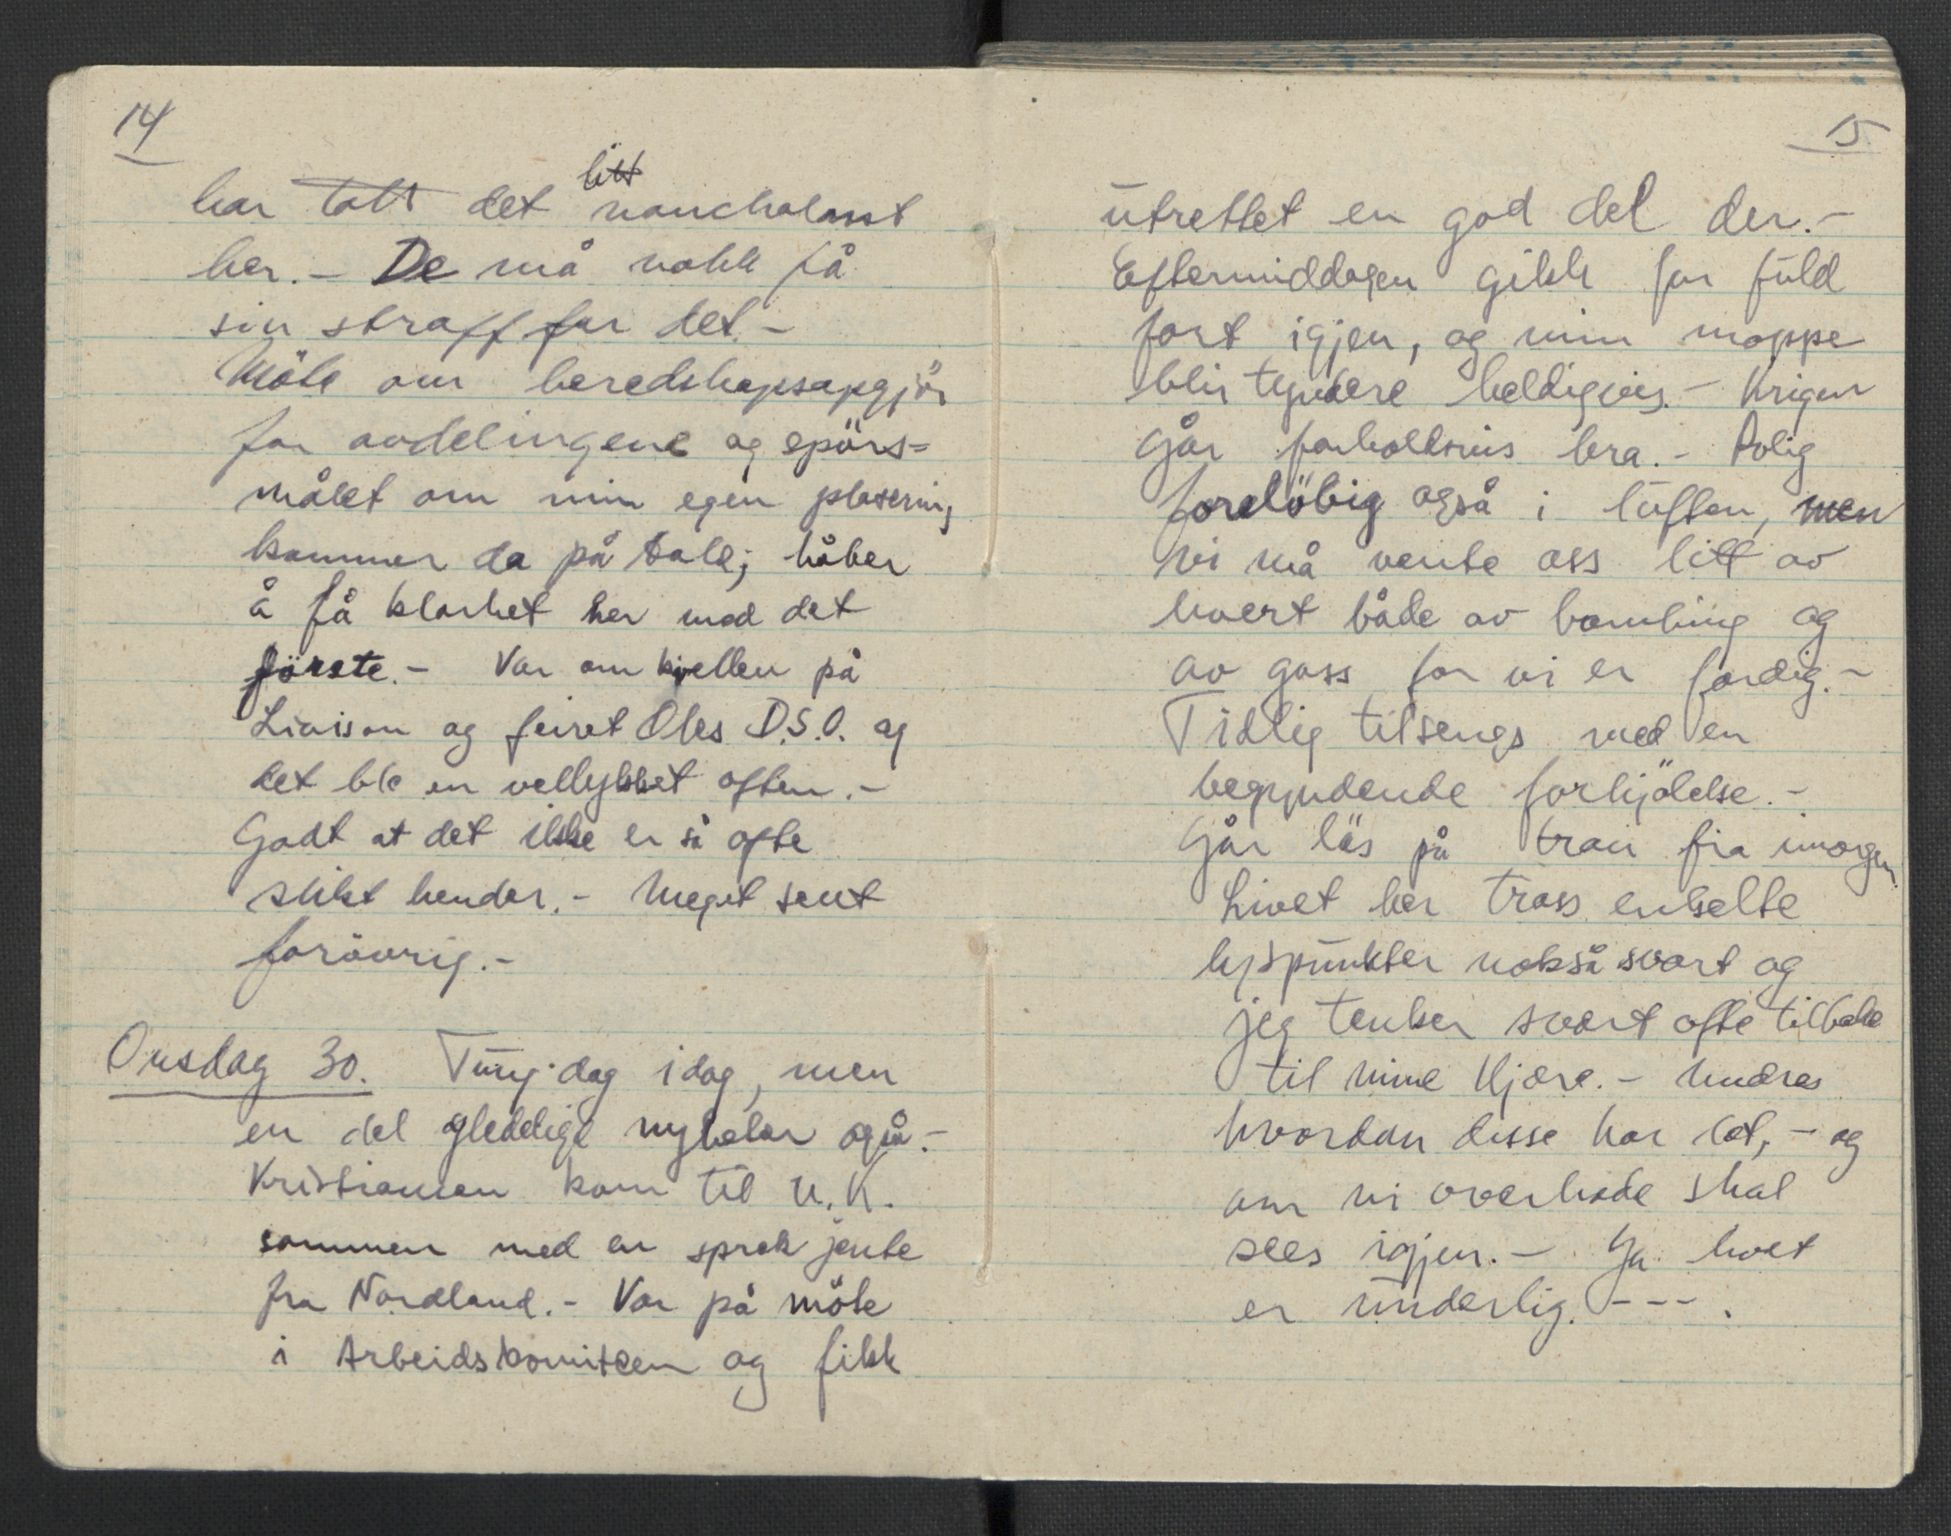 14
har tatt det litt nonchalant
her. - De må nokk få
sin straff for det. -
Möte om beredskapsopgjör
for avdelingene og spörs=
målet om min egen plasering
kommer da på tale; håber
å få klarhet her med det
förste. - Var om kvellen på
Liaison og feiret Oles D.S.O. og
det ble en vellykket aften. -
Godt at det ikke er så ofte
slikt hender. - Meget sent
forövrig. -
Onsdag 30. Tung dag idag, men
en del gledelige nyheter også. -
Kristiansen kom til U.K.
sammen med en sprek jente
fra Nordland. - Var på möte
i Arbeidskomiteen og fikk
15
utrettet en god del der. -
Eftermiddagen gikk for fuld
fart igjen, og min mappe
blir tyndere heldigvis. - Krigen
går forholdsvis bra. - Rolig
forelöbig også i luften, men
vi må vente oss litt av
hvert både av bombing og
av gass for vi er færdig. -
Tidlig tilsengs med en
begyndende forkjölelse. -
Går lös på tran fra imorgen.
Livet her tross enkelte
lyspunkter nokså svart og
jeg tenker svært ofte tilbake
til mine Kjære. - Undres
hvordan disse har det, - og
om vi overhode skal
sees igjen. - Ja livet
er underlig. - - - .